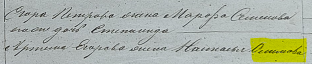 Егора Петрова жена Марфа Семенова
дочь Степанида
Артема Егорова жена Наталья Осипова